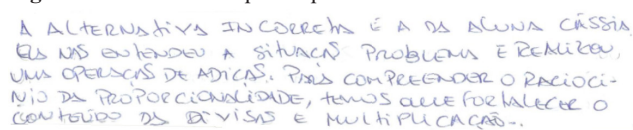 A ALTERNATIVA INCORRETA É A DA ALUNA CÁSSIA
ELA NÃO ENTENDEU A SITUAÇÃO PROBLEMA E REALIZOU
UMA OPERAÇÃO DE ADIÇÃO. PARA COMPREENDER O RACIOCÍ-
NIO DA PROPORCIONALIDADE, TEMOS QUE FORTALECER O
CONTEÚDO DA DIVISÃO E MULTIPLICAÇÃO...